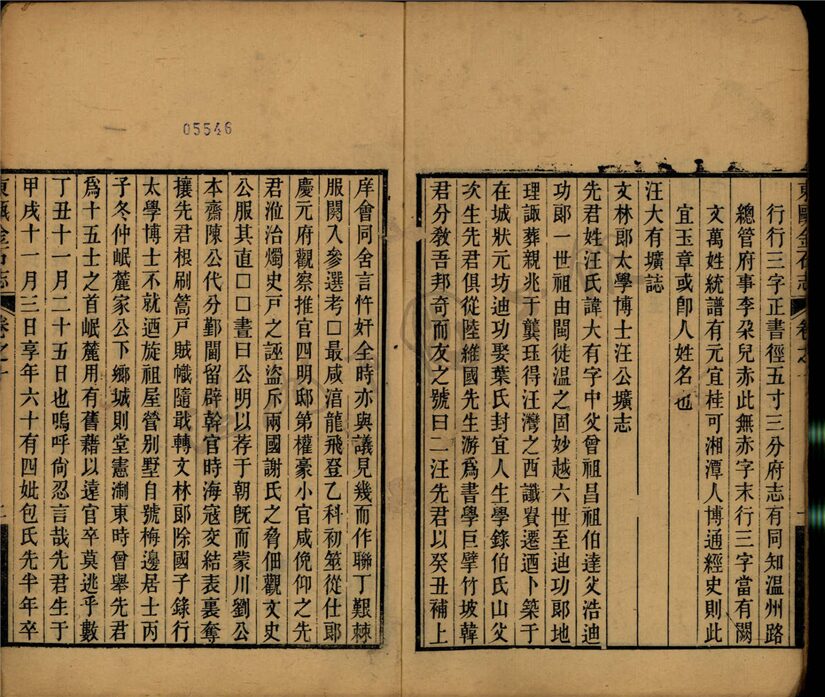 05546
東甌金石志
行行三字正書徑五寸三分府志有同知溫州路
總管府事李朶兒赤此無赤字末行三字當有闕
文萬姓統譜有元宜桂可湘潭人博通經史則此
宜玉章或卽人姓名也
汪大有壙誌
文林郎太學博士汪公壙志
先君姓汪氏諱大有字中父曾祖昌祖伯達父浩迪
功郞一世祖由閩徙溫之固妙越六世至迪功郞地
理諏葬親兆于龔珏得汪灣之西讖賓遷迺卜築于
在城狀元坊迪功娶葉氏封宜人生學錄伯氏山父
次生先君俱從陸維國先生游爲書學巨擘竹坡韓
君分敎吾邦奇而友之號曰二汪先君以癸丑補上
庠會同舍言忤奸全時亦與議見幾而作聯丁艱棘
服闋入參選考□最咸涫龍飛登乙科初筮從仕郞
慶元府觀察推官四明邸第權豪小官咸俛仰之先
君涖治燭史戸之誣盜斥兩國謝氏之脅佃觀文史
公服其直□□書曰公明以荐于朝旣而蒙川劉公
本齋陳公代分鄞閫留辟幹官時海寇交結表裏奪
攘先君根刷篙戸賊幟隨戢轉文林郞除國子錄行
太學博士不就迺旋祖屋營别墅自號梅邊居士丙
子冬仲岷麓家公下鄉城則堂憲淛東時曾舉先君
爲十五士之首岷麓用有舊藉以遠官卒莫逃乎數
丁丑十一月二十五日也嗚呼尙忍言哉先君生于
甲戌十一月三日享年六十有四妣包氏先半年卒
東甌金石志